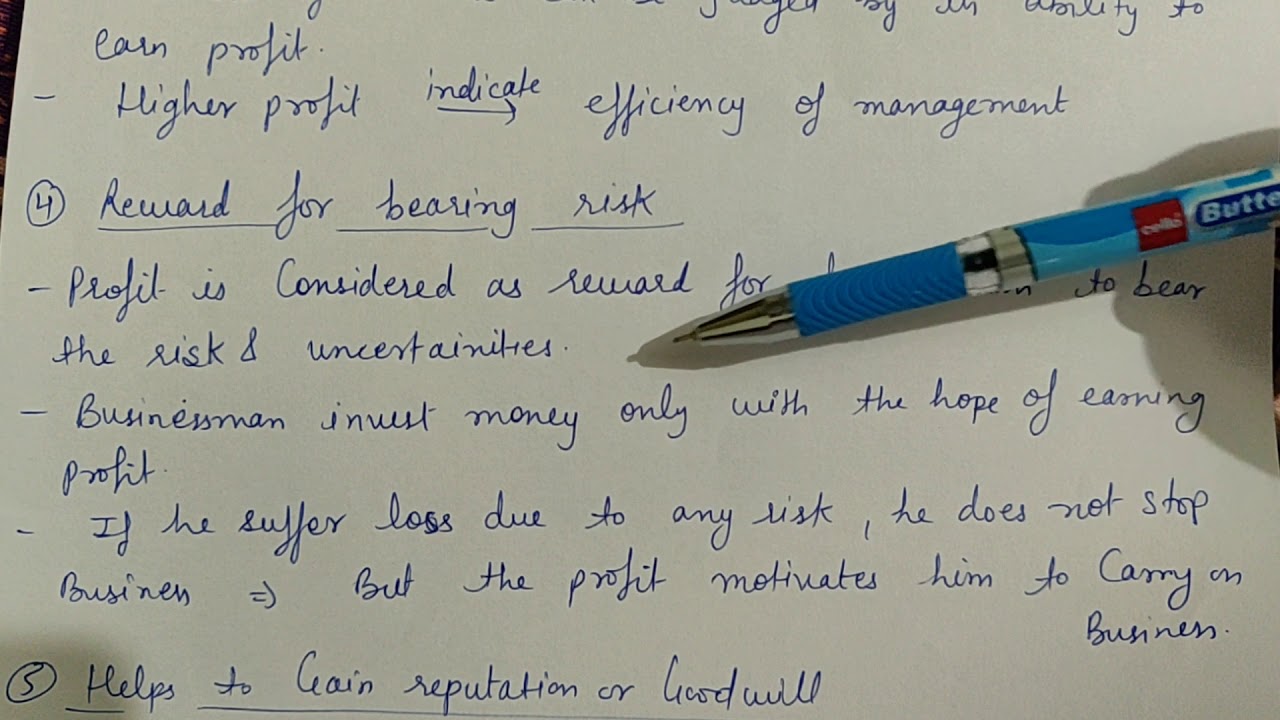 judged by its ability to
earn profit.
- Higher profit indicate → efficiency of management
④ Reward for bearing risk
- Profit is Considered as reward for to bear
the risk & uncertainities.
- Businessman invest money only with the hope of earning
profit.
- If he suffer loss due to any risk, he does not stop
Business ⇒ But the profit motivates him to Carry on
Business.
⑤ Helps to Gain reputation or Goodwill
cello
Butte